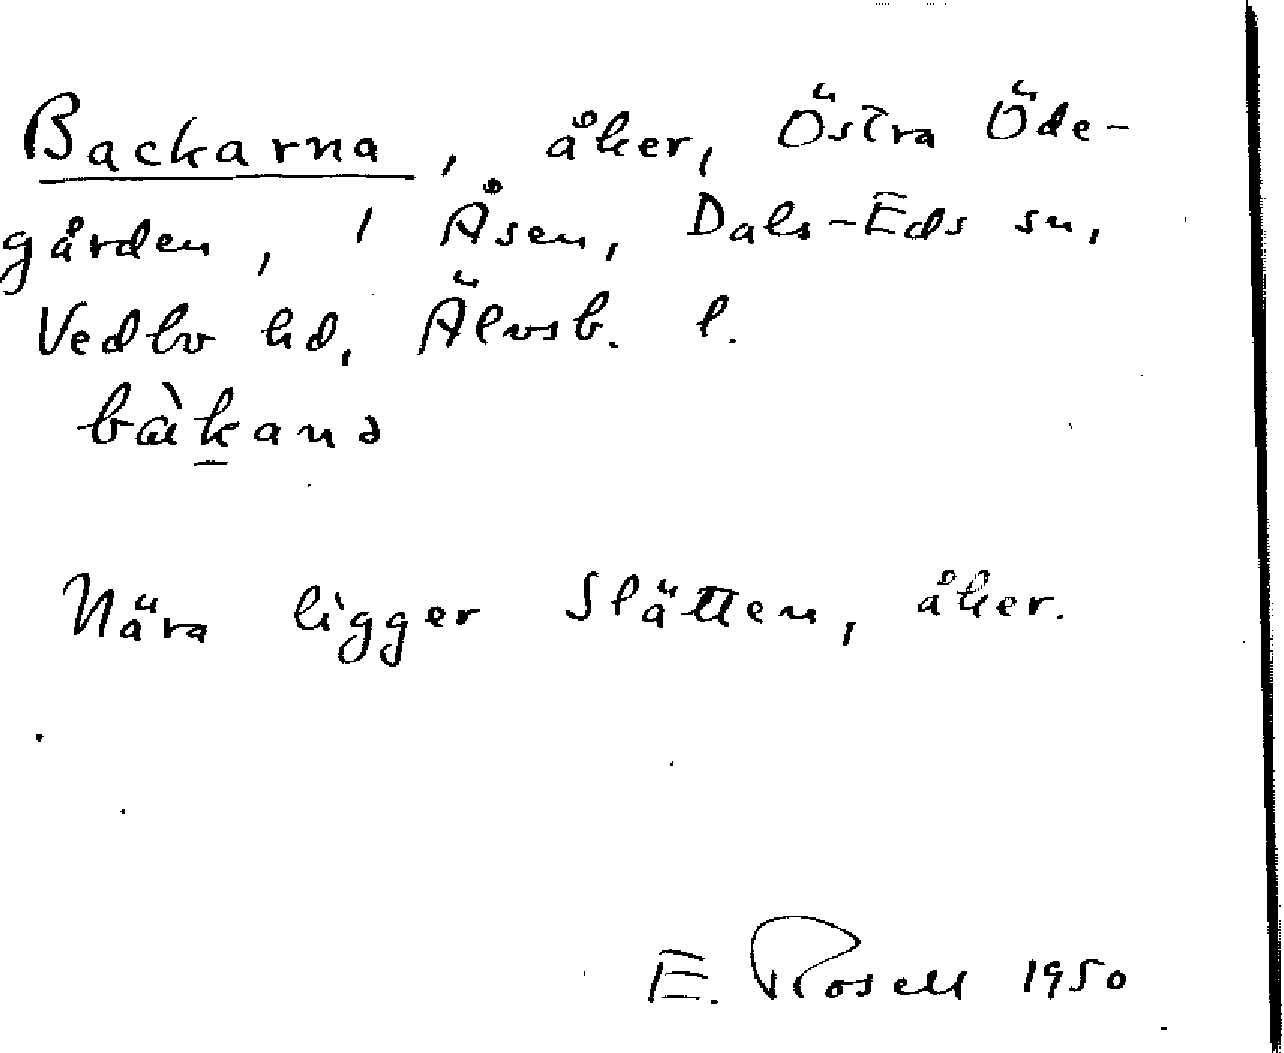 Backarna, åker, Östra Öde-
gården, 1 Åsen, Dals-Eds sn,
Vedbo hd, Älvsb. l.
bàkanə
Nära ligger Slätten, åker.
E. Rosell 1950